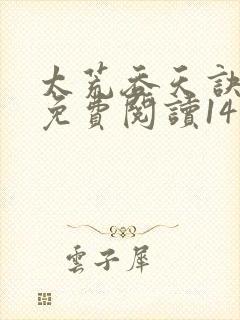 大荒吞天訣
免費閱讀14
雲子犀